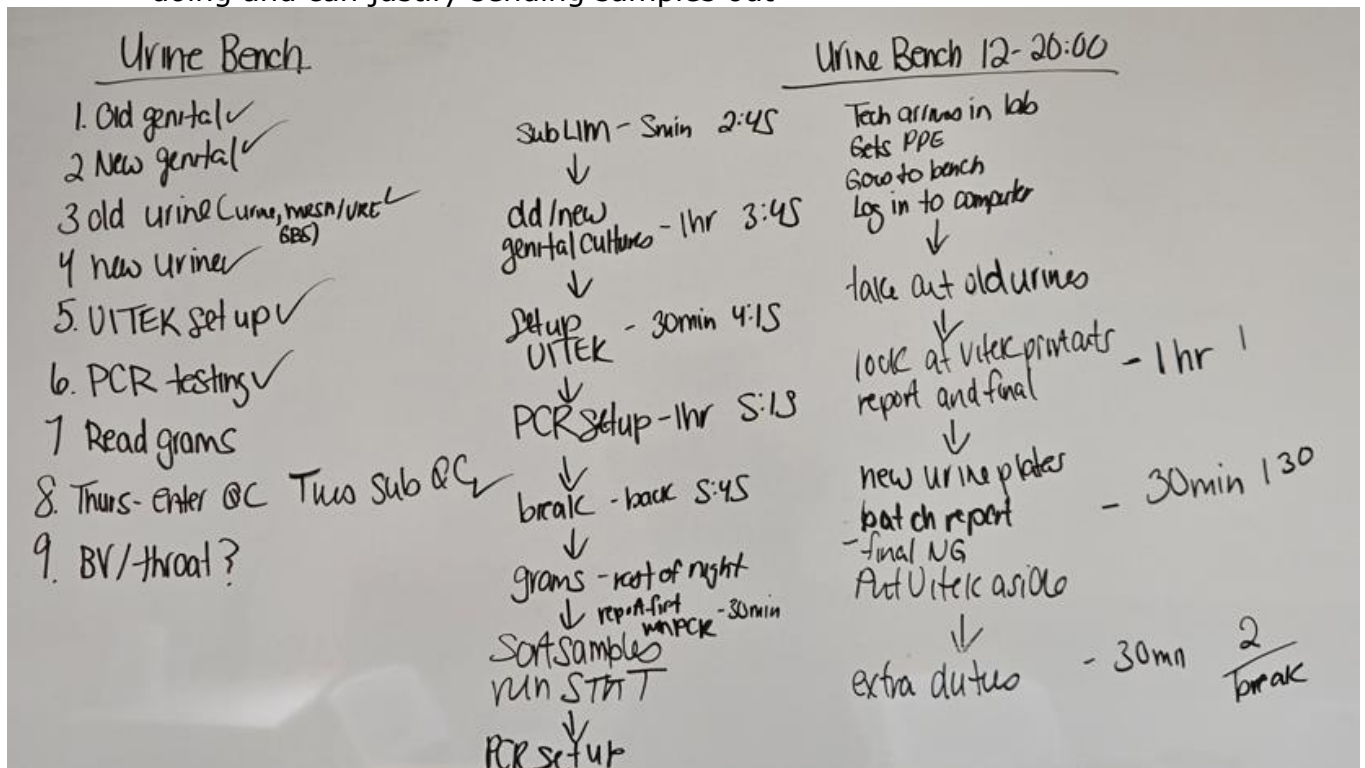 doing and can justify sending samples out
Urine Bench
1. Old genital ✓
2 New genital ✓
3 old urine (urine, MRSA/VRE ✓
GBS)
4 new urine ✓
5. VITEK set up ✓
6. PCR testing ✓
7 Read grams
8. Thurs- Enter QC Tues Sub QC ✓
9. BV/throat?
Sub LIM - 5min 2:45
↓
old/new
genital cultures - 1hr 3:45
↓
Setup
VITEK - 30min 4:15
↓
PCR setup - 1hr 5:15
↓
break - back 5:45
↓
grams - rest of night
↓ report first
run PCR - 30min
Sort samples
run
↓
PCR set up
Urine Bench 12-20:00
Tech arrives in lab
Gets PPE
Goes to bench
Log in to computer
↓
take out old urines
↓
look at Vitek printouts
report and final - 1hr 1
↓
new urine plates
batch report - 30min 1 30
- final NG
Put Vitek aside
↓
extra duties - 30mn 2
break